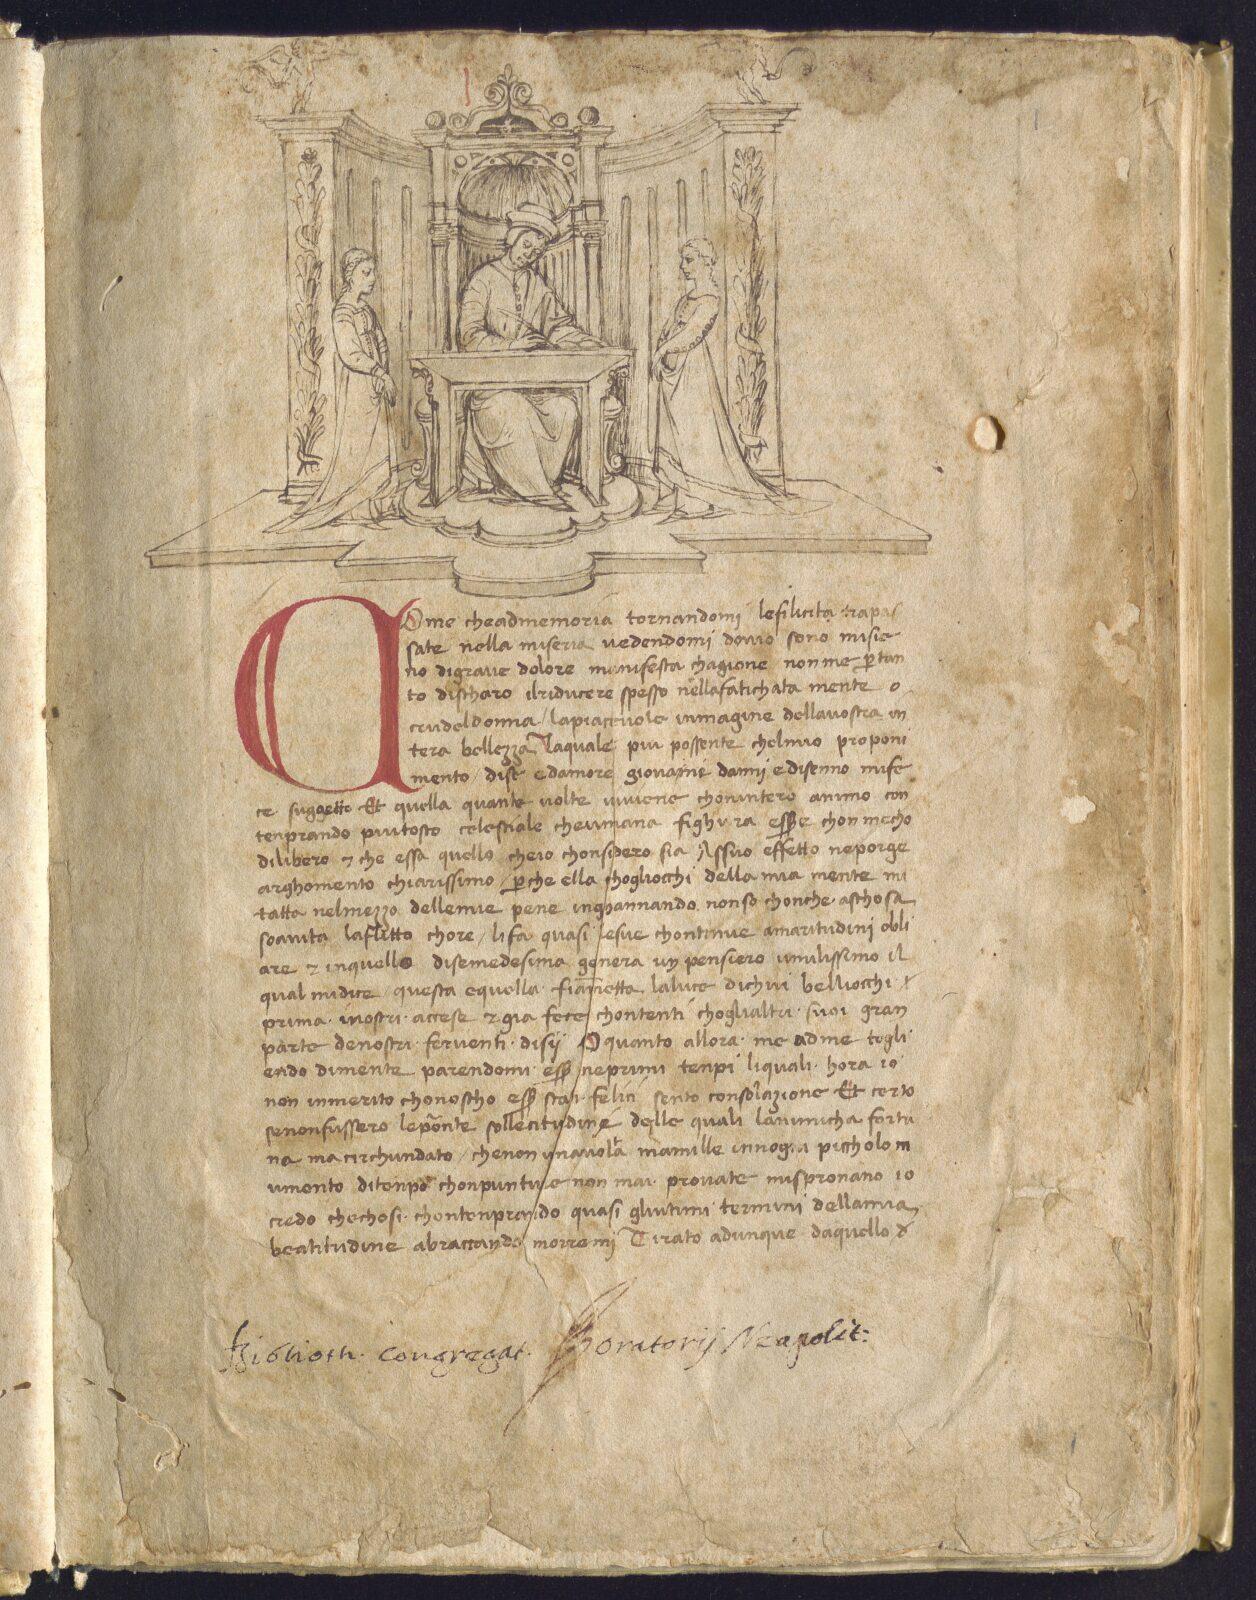 Ome cheadmemoria tornandomi lefilicita trapas
sate nella miseria vedendomi dovio sono misie
no digrave dolore manifesta chagione nonme ꝑtan
to discharo ilriducere spesso nellafatichata mente o
crudeldonna / lapiacevole inmagine dellavostra in
tera bellezza laquale piu possente chelmio proponi
mento di se edamore giovane danni edisenno mife
ce suggetto Et quella quante volte miviene chonintero animo con
tenprando piutosto celestiale cheumana fighura eſſere chonmecho
dilibero ⁊ che essa quello cheio chonsidero sia Assuo effetto neporge
arghomento chiarissimo / ꝑche ella chogliocchi della mia mente mi
tatta nelmezzo dellemie pene inghannando nonso chonche aschosa
soavita laflitto chore / lifa quasi lesue chontinue amaritudini obli
are ⁊ inquello disemedesima genera un pensiero umilissimo il
qual midice questa equella fiammetta laluce dichui belliocchi
prima inostri accese ⁊ gia fece chontenti choglialtri suoi gran
parte denostri ferventi disij O quanto allora me adme togli
endo dimente parendomi esser neprimi tenpi liquali hora io
non inmerito chonoscho esser stati felici sento consolazione Et certo
senonfussero leponte sollecitudine delle quali lanimicha fortu
na ma circhundato / chenon unavolta mamille innogni piccholo m
omento ditenpo chonpunture non mai provate mispronano io
credo chechosi chontenprando quasi gliutimi termini dellamia
beatitudine abracciando morremi Tirato adunque daquello
Biblioth. Congregat. Oratorij Neapolit: